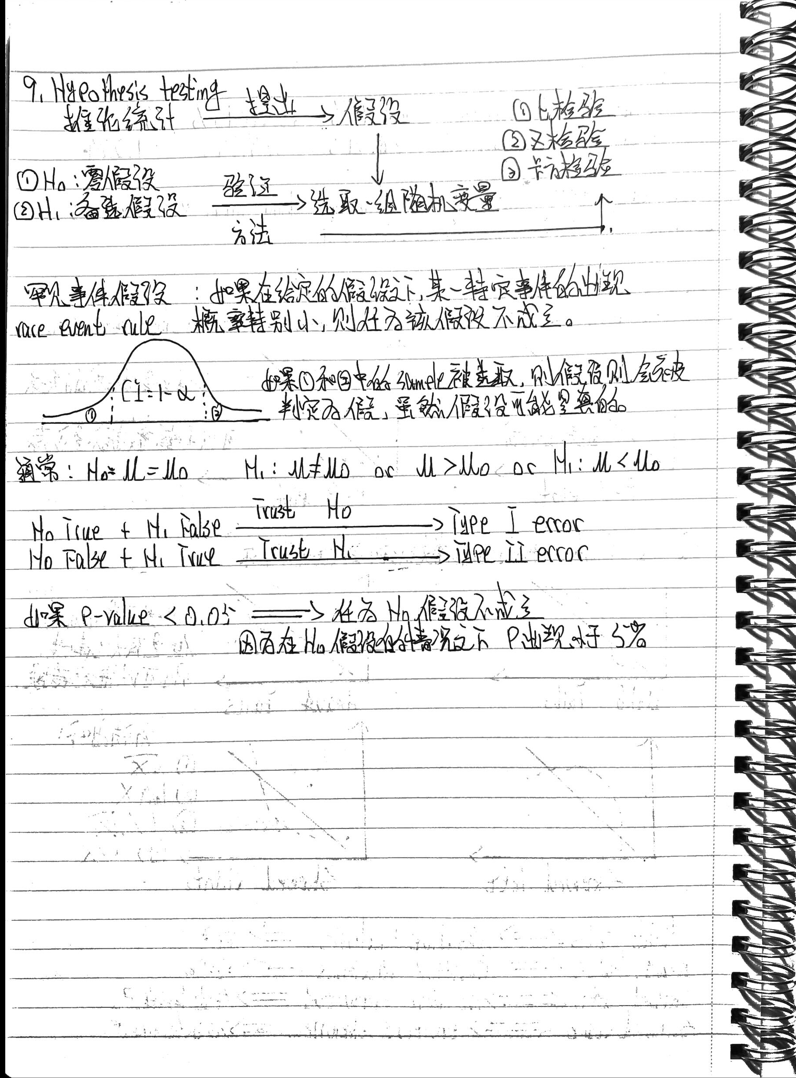 9. Hypothesis testing
推论统计 提出 → 假设
① t检验
② Z检验
③ 卡方检验
① H₀ : 零假设
② H₁ : 备选假设
验证 → 选取一组随机变量
方法
罕见事件假设 : 如果在给定的假设下,某一特定事件的出现
rare event rule 概率特别小,则认为该假设不成立。
① CI = 1-α ②
如果①和②中的sample被选取,则假设则会被
判定为假,虽然假设可能是真的。
通常: H₀: μ = μ₀ H₁: μ ≠ μ₀ or μ > μ₀ or H₁: μ < μ₀
H₀ True + H₁ False Trust H₀ → Type I error
H₀ False + H₁ True Trust H₁ → Type II error
如果 P-value < 0.05 ⟹ 认为 H₀ 假设不成立
因为在 H₀ 假设的情况之下 P出现小于 5%